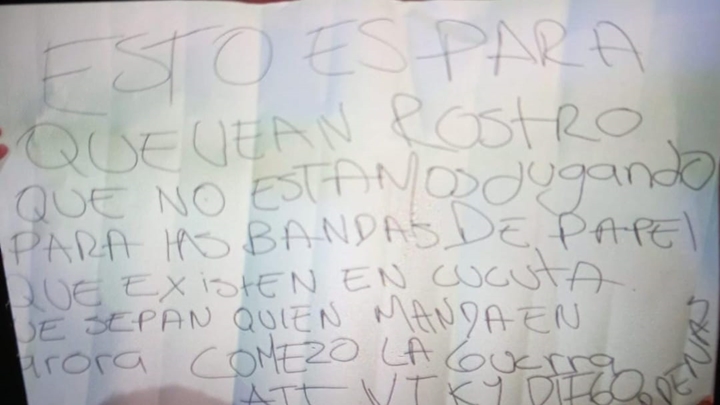 ESTO ES PARA
QUE VEAN ROSTRO
QUE NO ESTAMOS dugando
PARA LAS BANDAS DE PAPEl
QUE EXistEN EN CUCUtA.
UE SEPAN QUIEN MANDA EN
arora COMEZO LA Guerra
ATT VTKY DIEGO